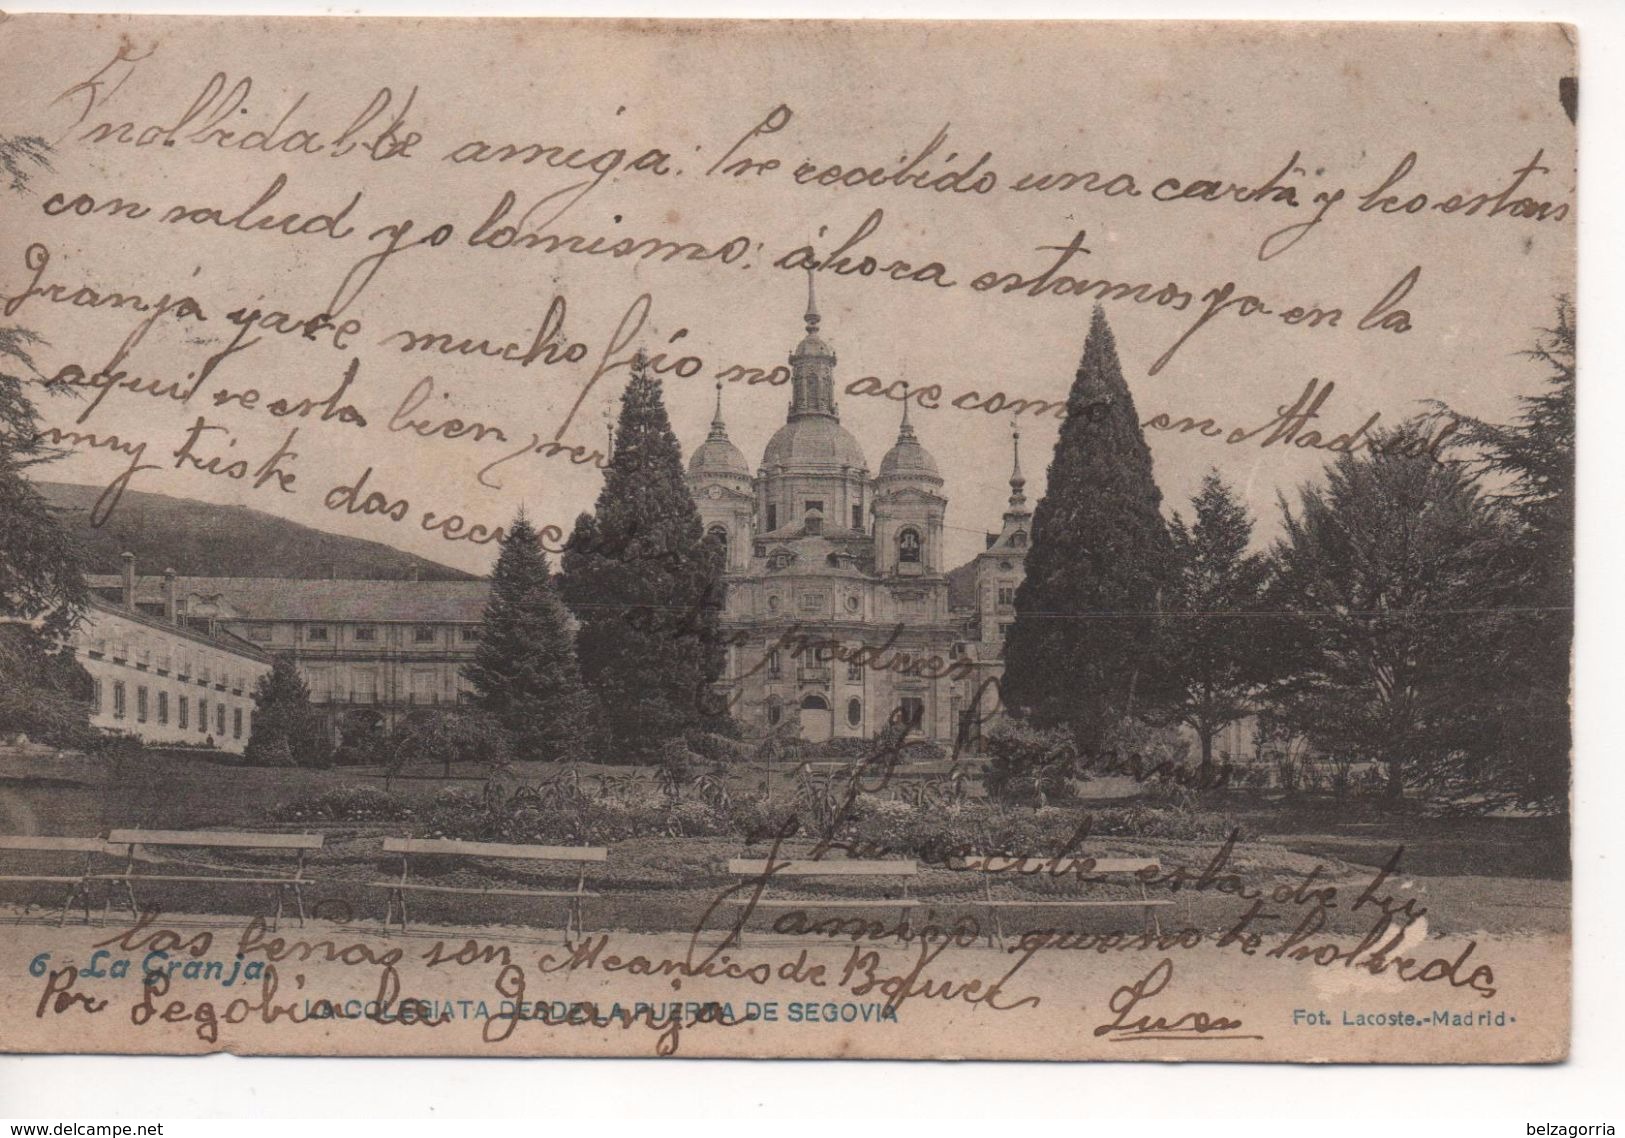 Ynolbidalble amiga: he recibido una carta y beo estais
con salud yo lo mismo: áhora estamos ya en la
Granja y ace mucho frio no ace como en Madrid
aqui se esta bien pero
muy triste das recuerdos
a tus padres
y hermanos
y tu recibe esta de tu
amigo que no te holbida
las señas son
Por Segobia la Granja
6 - La Granja.
LA COLEGIATA DESDE LA PUERTA DE SEGOVIA
Fot. Lacoste.-Madrid.
www.delcampe.net
belzagorria